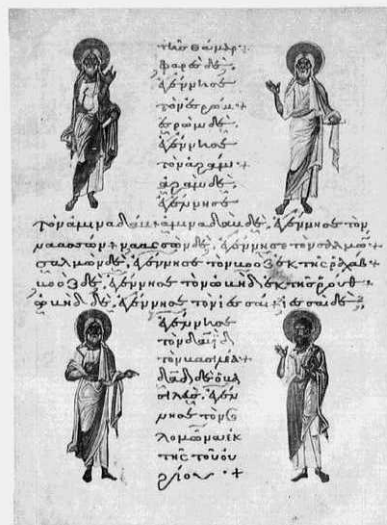 τῆς θάμαρ·
φαρὲς δὲ
ἐγέννησε
τὸν ἐσρώμ +
ἐσρὼμ δὲ,
ἐγέννησε
τὸν ἀράμ·
ἀρὰμ δὲ,
ἐγέννησε
τὸν ἀμιναδάμ + ἀμιναδὰμ δὲ, ἐγέννησε τὸν
ναασσών + ναασσὼν δὲ, ἐγέννησε τὸν σαλμών +
σαλμὼν δὲ, ἐγέννησε τὸν βοὸζ ἐκ τῆς ῥαχάβ
βοὸζ δὲ, ἐγέννησε τὸν ὠβὴδ ἐκ τῆς ῥούθ +
ὠβὴδ δὲ, ἐγέννησε τὸν ἰεσσαί + ἰεσσαὶ δὲ
ἐγέννησε
τὸν δαδ
τὸν βασιλέα +
δαδ δὲ ὁ βα
σιλεὺς, ἐγέν
νησε τὸν σο
λομῶνα ἐκ
τῆς τοῦ οὐ
ρίου · +